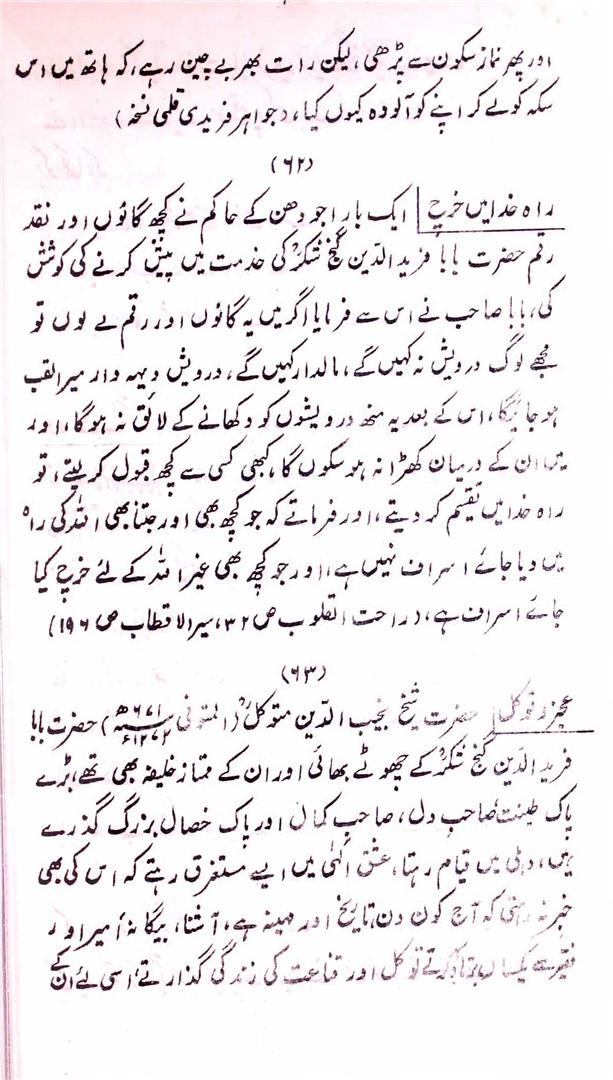 اور پھر نماز سکون سے پڑھی، لیکن رات بھر بے چین رہے، کہ ہاتھ میں اس
سکہ کو لے کر اپنے کو آلودہ کیوں کیا، (جواہر فریدی قلمی نسخہ)
(۶۲)
راہ خدا میں خرچ ایک بار اجودھن کے حاکم نے کچھ گاؤں اور نقد
رقم حضرت بابا فرید الدین گنج شکرؒ کی خدمت میں پیش کرنے کی کوشش
کی، بابا صاحب نے اس سے فرمایا اگر میں یہ گاؤں اور رقم لے لوں تو
مجھے لوگ درویش نہ کہیں گے، مالدار کہیں گے، درویش دیہہ دار میرا لقب
ہو جائیگا، اس کے بعد یہ منھ درویشوں کو دکھانے کے لائق نہ ہوگا، اور
میں ان کے درمیان کھڑا نہ ہو سکوں گا، کبھی کسی سے کچھ قبول کر لیتے، تو
راہ خدا میں تقسیم کر دیتے، اور فرماتے کہ جو کچھ بھی اور جتنا بھی اللہ کی راہ
میں دیا جائے اسراف نہیں ہے، اور جو کچھ بھی غیر اللہ کے لئے خرچ کیا
جائے اسراف ہے، (راحت القلوب ص ۳۲، سیر الاقطاب ص ۱۹۶)
(۶۳)
عجز و توکل حضرت شیخ نجیب الدین متوکلؒ (المتوفی ۶۷۱ھ ۱۲۷۲ء) حضرت بابا
فرید الدین گنج شکرؒ کے چھوٹے بھائی اور ان کے ممتاز خلیفہ بھی تھے، بڑے
پاک طینت صاحب دل، صاحب کمال اور پاک خصال بزرگ گذرے
ہیں، دہلی میں قیام رہتا، عشق الٰہی میں ایسے مستغرق رہتے کہ اس کی بھی
خبر نہ رہتی کہ آج کون دن، تاریخ اور مہینہ ہے، آشنا، بیگانہ، امیر اور
فقیر سے یکساں برتاؤ کرتے توکل اور قناعت کی زندگی گذارتے، اسی لئے ان کے